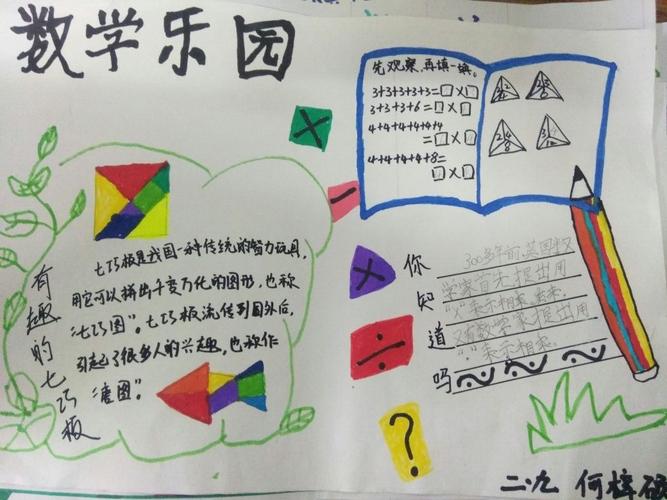 数学乐园
先观察,再填一填。
3+3+3+3+3=□×□
3+3+3+6=□×□
4+4+4+4+4+4
=□×□
4+4+4+4+8=
□×□
+
−
×
÷
?
有趣的七巧板
七巧板是我国一种传统的智力玩具,
用它可以拼出千变万化的图形,也称
“七巧图”。七巧板流传到国外后,
引起了很多人的兴趣,也称作
“唐图”。
你知道吗
300多年前,英国数
学家首先提出用
“×”表示相乘,
又有数学家提出用
“·”表示相乘。
二.九 何梓